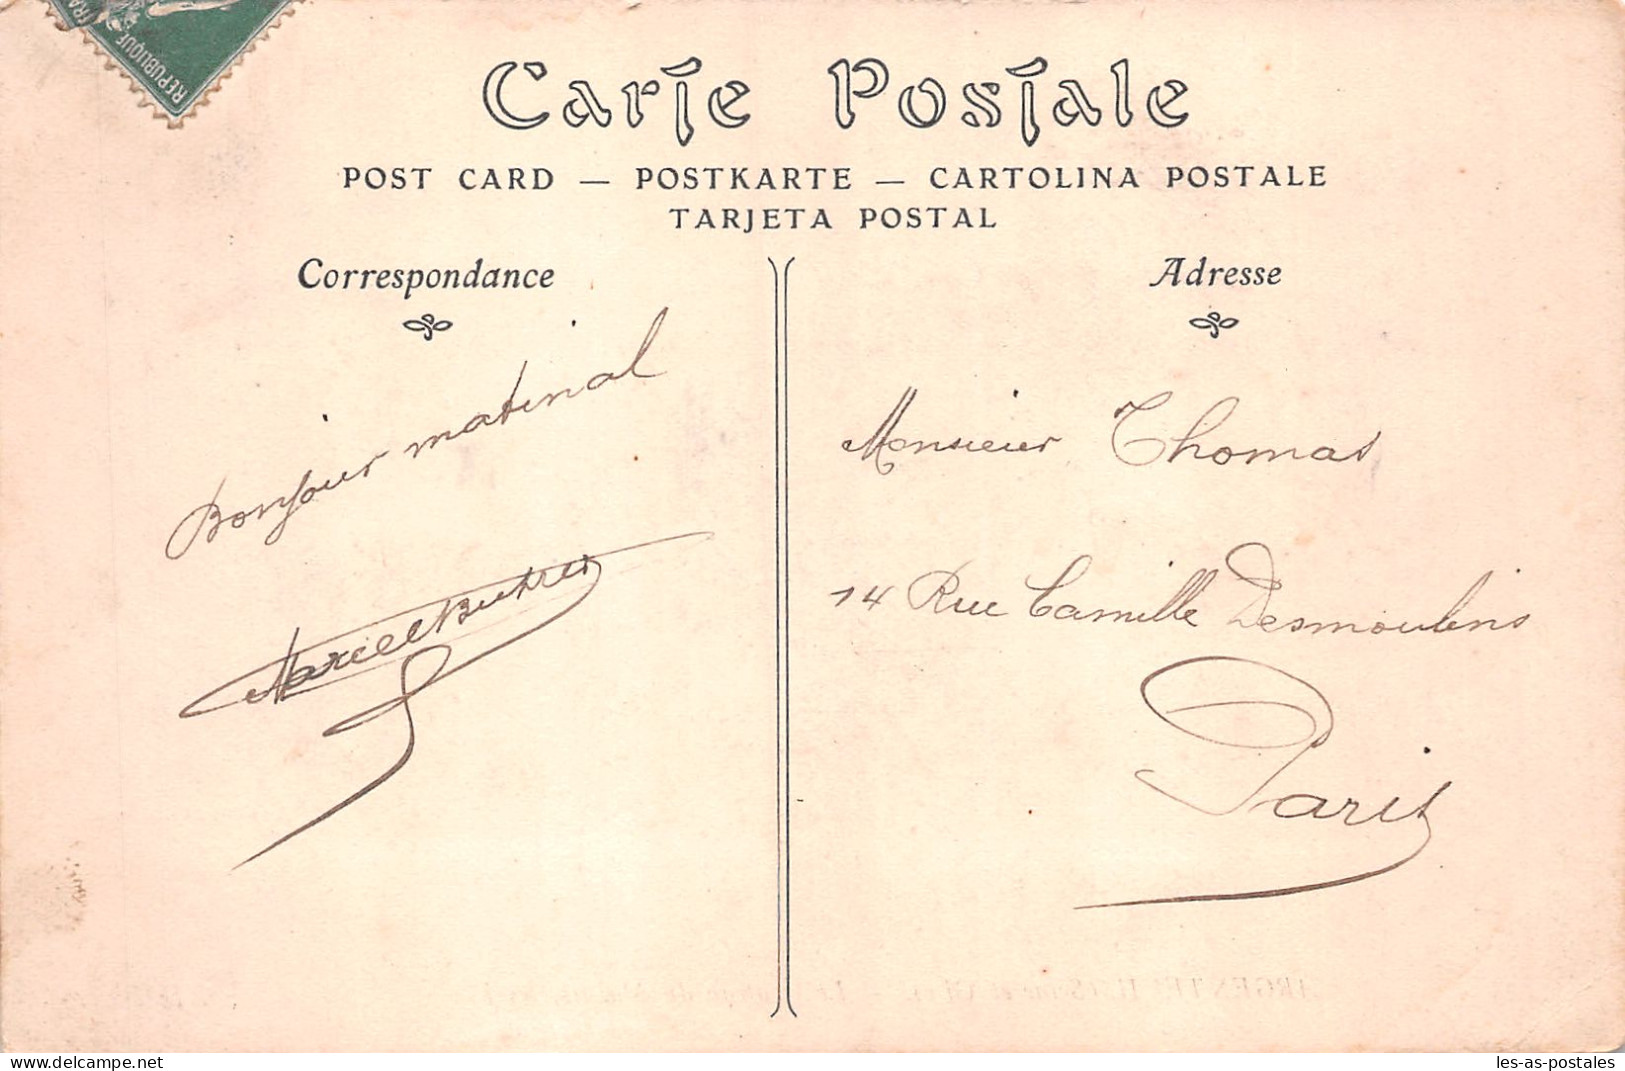 REPUBLIQUE FRA
Carte Postale
POST CARD — POSTKARTE — CARTOLINA POSTALE
TARJETA POSTAL
Correspondance
Bonjour matinal
Marcel
Adresse
Monsieur Thomas
14 Rue Camille Desmoulins
Paris
delcampe.net
les-as-postales